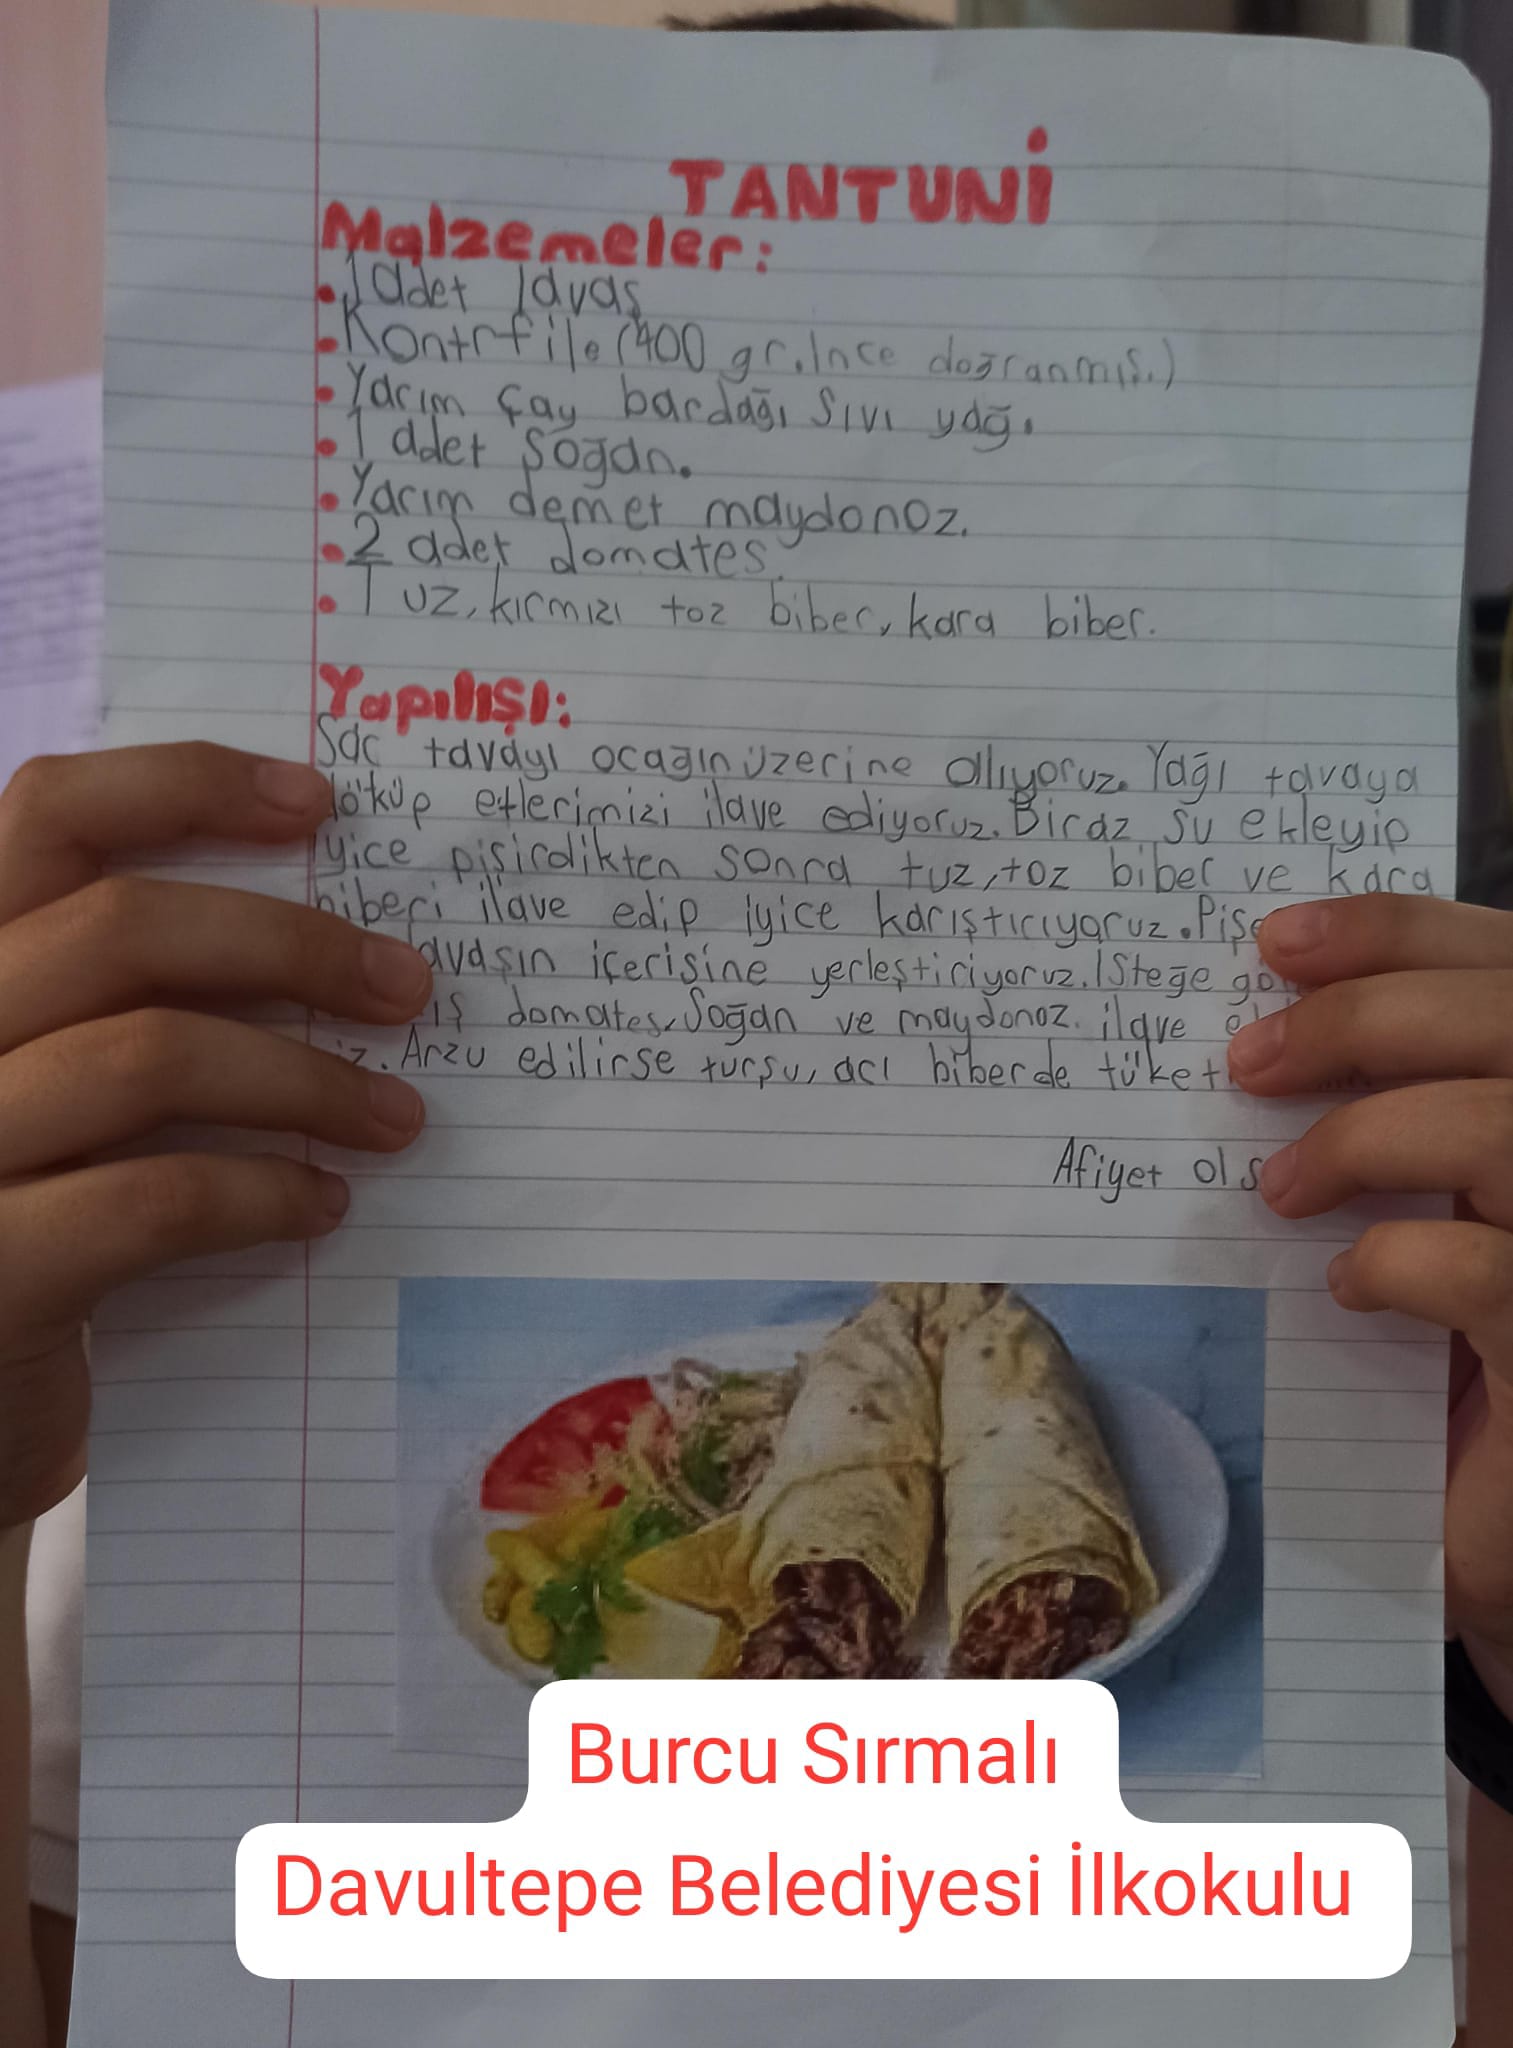 TANTUNİ
Malzemeler:
1 adet lavaş
Kontrfile (400 gr. İnce doğranmış.)
Yarım çay bardağı sıvı yağ.
1 adet soğan.
Yarım demet maydonoz.
2 adet domates.
Tuz, kırmızı toz biber, kara biber.
Yapılışı:
Sac tavayı ocağın üzerine alıyoruz. Yağı tavaya
döküp etlerimizi ilave ediyoruz. Biraz su ekleyip
iyice pişirdikten sonra tuz, toz biber ve kara
biberi ilave edip iyice karıştırıyoruz.
içerisine yerleştiriyoruz. İsteğe
domates, soğan ve maydonoz. ilave
Arzu edilirse turşu, acı biberde
Afiyet
Burcu Sırmalı
Davultepe Belediyesi İlkokulu